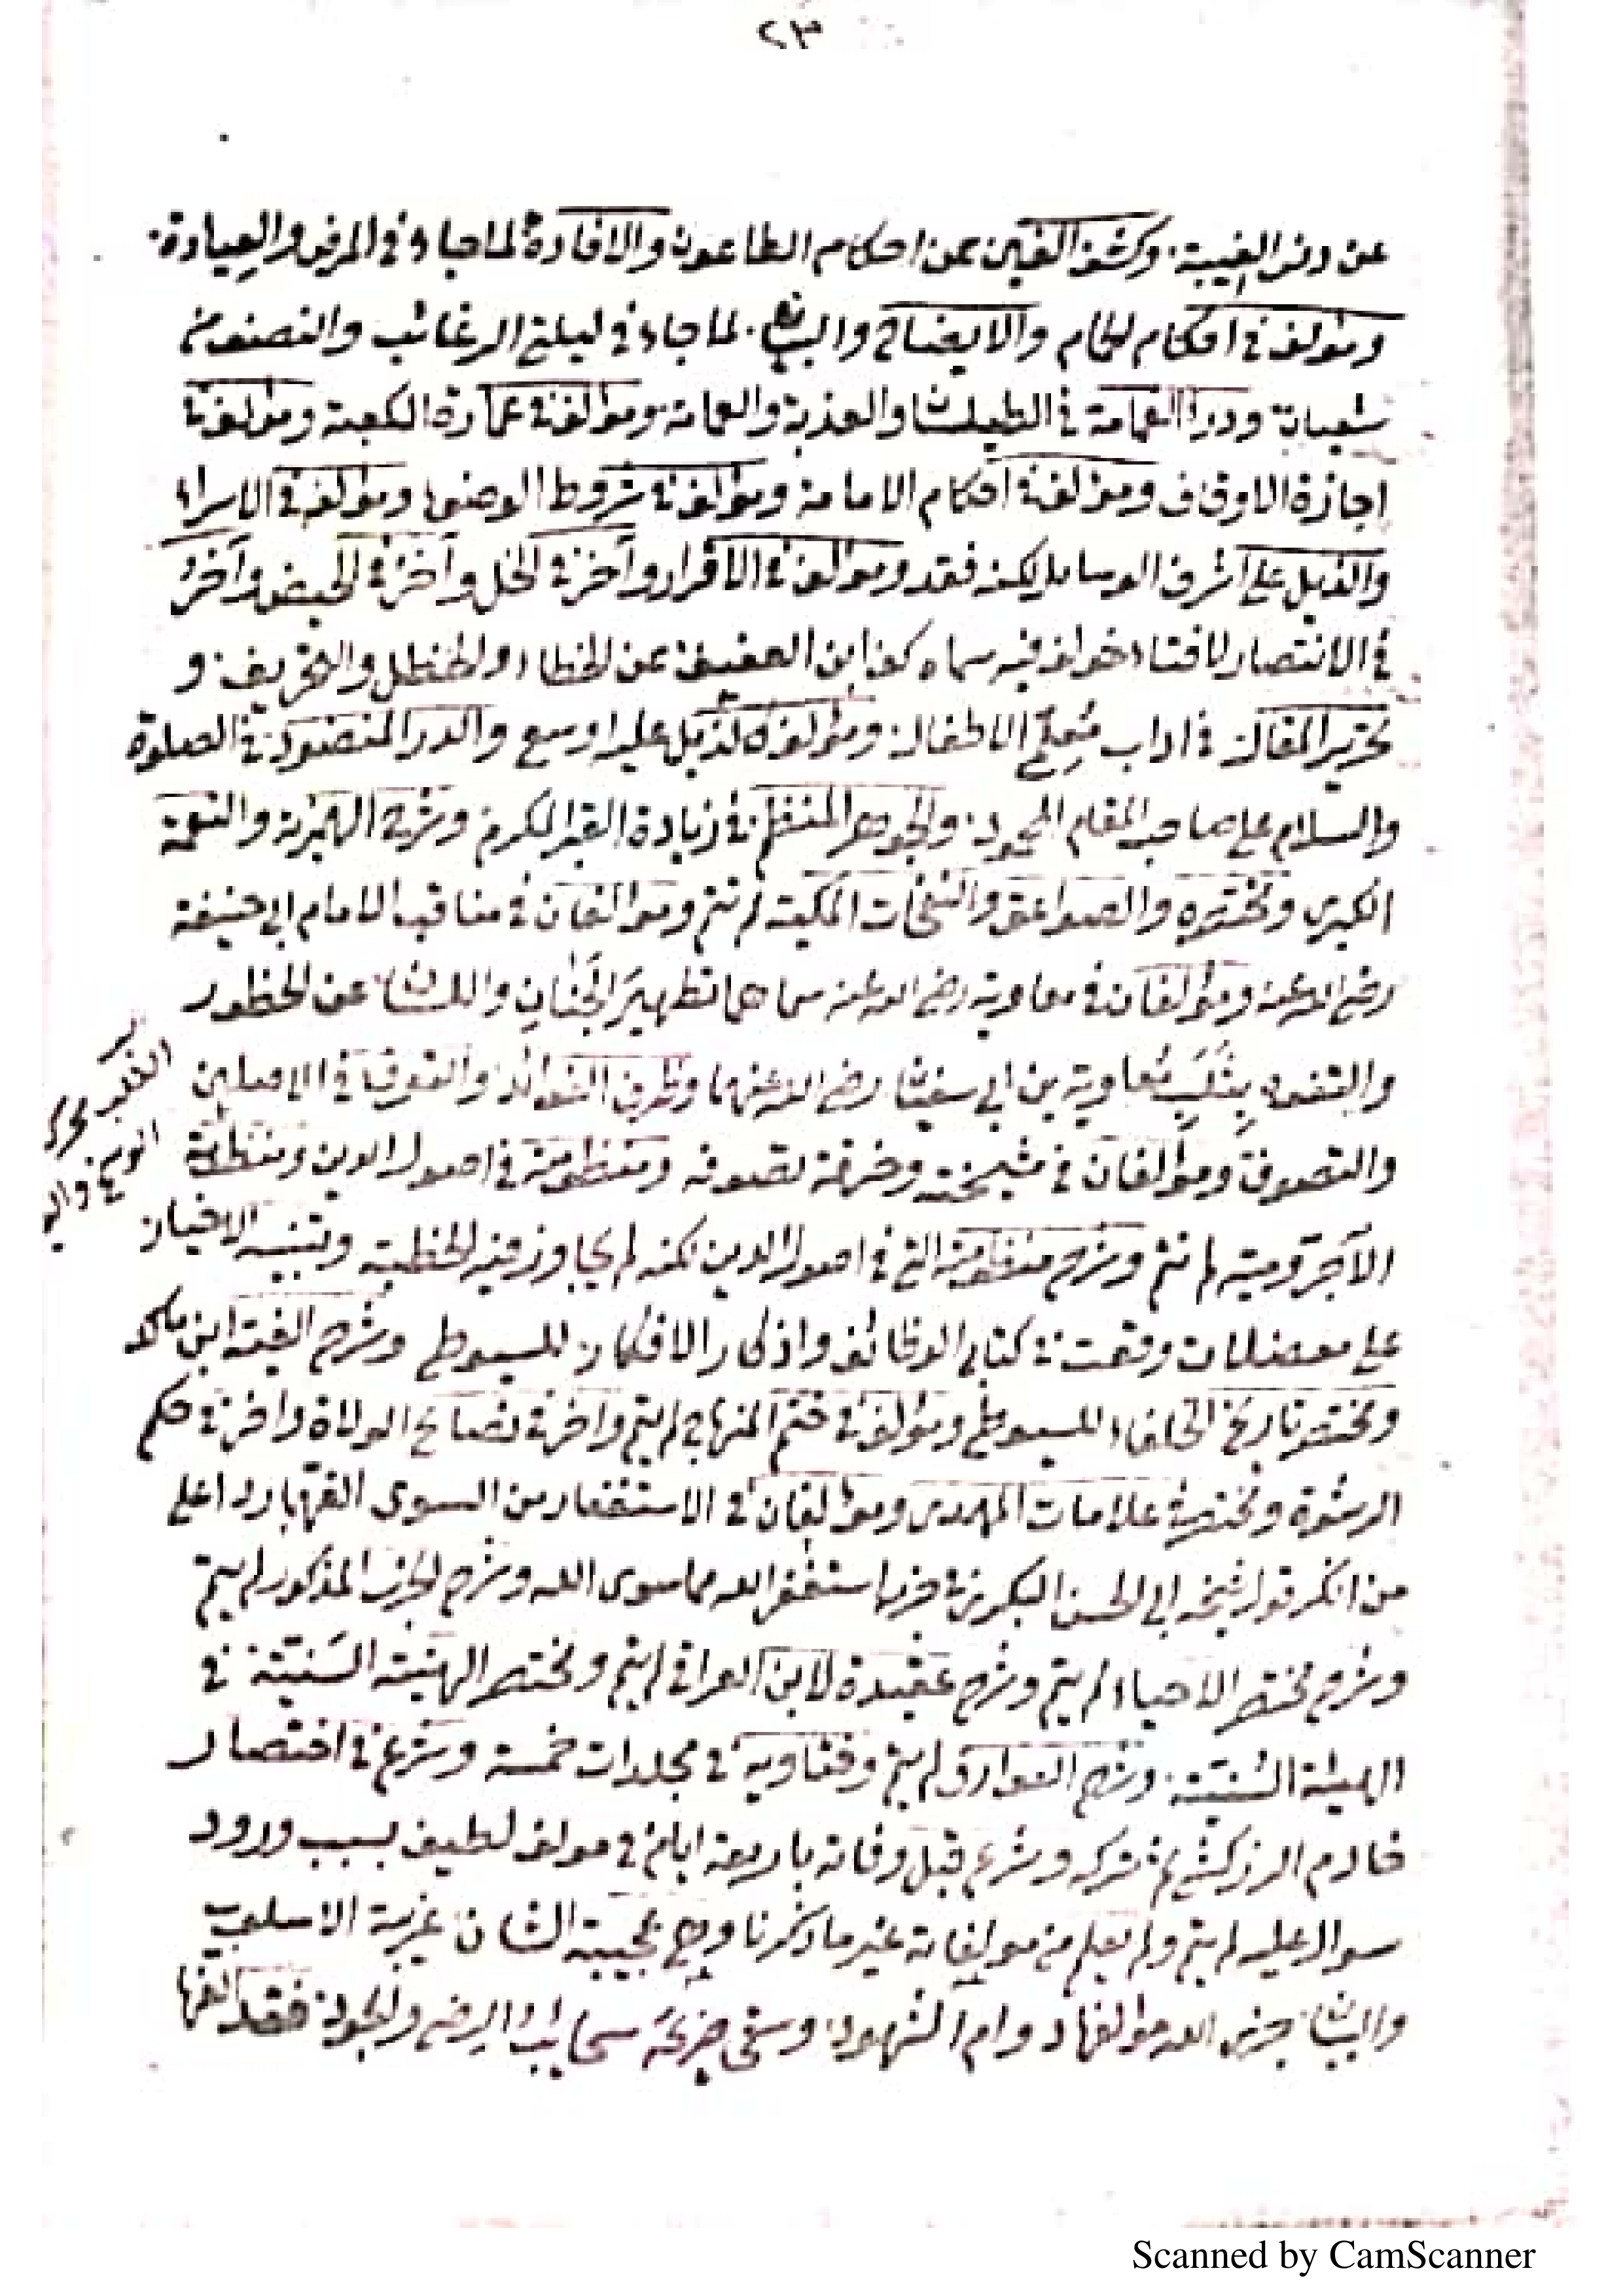 ٢٣
عن دنس الغيبة. وكشف الغين عن احكام الطاعون والافادة لما جاء في المرض والعيادة.
ومؤلف في احكام الحمام والايضاح والبيان. لما جاء في ليلة الرغائب والنصف من
شعبان. ودر الغمامة في الطيلسان والعذبة والعمامة ومؤلف في عمارة الكعبة ومؤلف في
اجازة الاوقاف ومؤلف في احكام الامامة ومؤلف في شروط الوضوء ومؤلف في الاسراء
والذيل على اشرف الوسايل لكنه فقد ومؤلف في الاقرار وآخر في الخل وآخر في الحيض وآخر
في الانتصار لافتاء خولف فيه سماه كف ابن العفيف عن الخطاء والخطل والتحريف. و
تحرير المقال في اداب مُعلّم الاطفال. ومؤلف كالذيل عليه اوسع والدر المنضود. في الصلوة
والسلام على صاحب المقام المحمود. والجوهر المنظم. في زيارة القبر المكرم وشرح الهمزية والنعمة
الكبرى ومختصره والصواعق والنفحات المكية لم تتم ومؤلفان في مناقب الامام ابي حنيفة
رضي الله عنه ومؤلفان في معاوية رضي الله عنه سماهما تطهير الجَنان واللسان عن الخطور
والتفوه بِثَلَبِ مُعاوية بن ابي سفيان رضي الله عنهما وطرف الفوائد والتعرف في الاصلين
والتصوف ومؤلفان في مشيخته وخرقة تصوفه ومنظومة في اصول الدين ومنظومة
الآجرومية لم تتم وشرح منظومة التي في اصول الدين لكنه لم يجاوز فيه الخطبة وتنبيه الاخيار.
على معضلات وقعت في كتابي الوظائف واذكار الافكار. للسيوطي وشرح الفية ابن مالك
ومختصر تاريخ الخلفاء للسيوطي ومؤلف في ختم المنهاج لم يتم وآخر في نصايح الولاة وآخر في حكم
الرشوة ومختصر في علامات المهدي ومؤلفان في الاستغفار من السوى الفهما رداً على
من انكر قول شيخه ابي الحسن البكري في حزبه استغفر الله مما سوى الله وشرح الحزب المذكور لم يتم
وشرح مختصر الاحياء لم يتم وشرح عقيدة لابن العراق لم يتم ومختصر الهيئة السَنيّة. في
الهيئة السُنيّة. وشرح العوارف لم يتم وفتاويه في مجلدات خمسة وشرع في اختصار
خادم الزركشي ثم تركه وشرع قبل وفاته باربعة ايام في مؤلف لطيف بسبب ورود
سوال عليه لم يتم ولم نعلم من مولفاته غير ما ذكرنا وهي عجيبة الشان. غريبة الاسلوب
والبيان. جزى الله مؤلفها دوام الشهود. وسقى ضريحَه سحايب الرضى والجود. فقد الفها